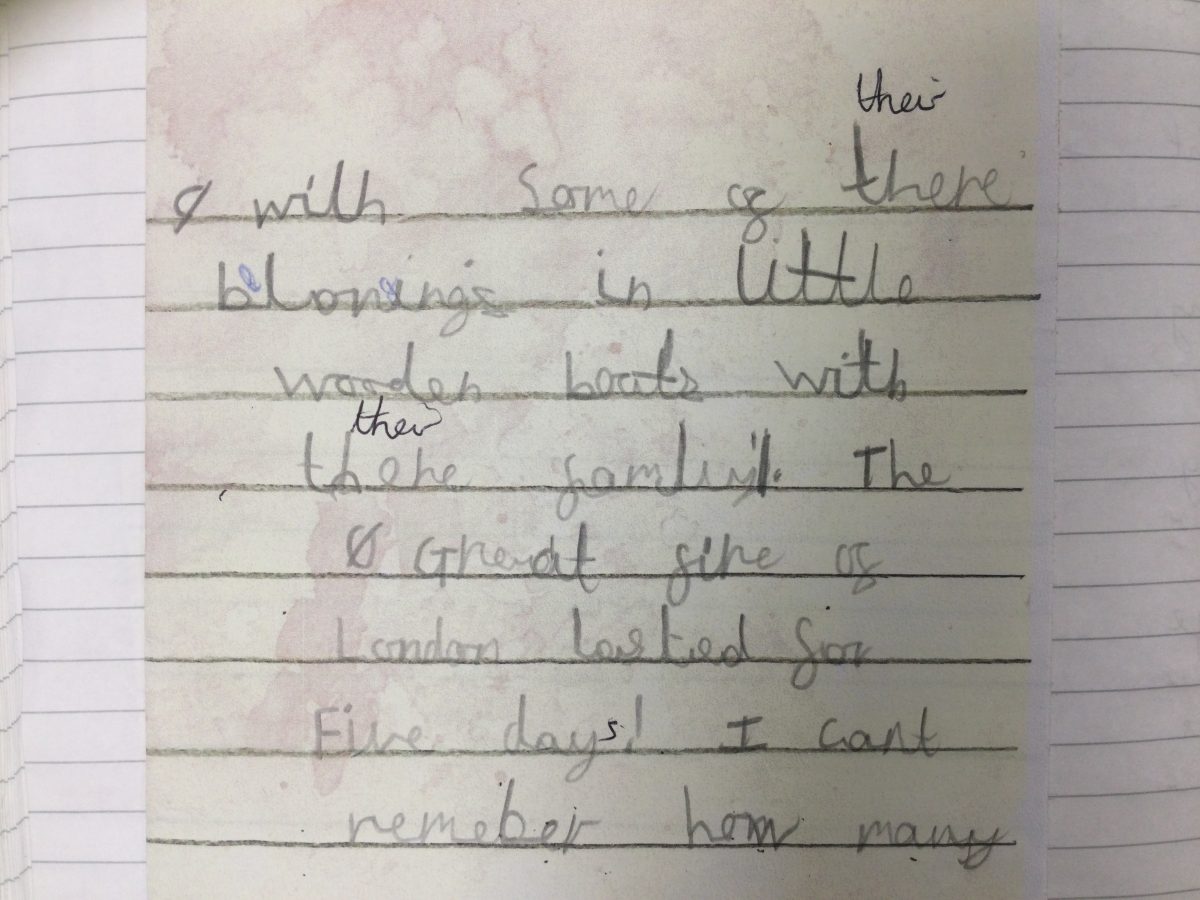 their
with Some of there
blonings in little
wooden boats with
their
there famliy. The
Great fire of
London lasted for
Five days! I cant
remeber how many